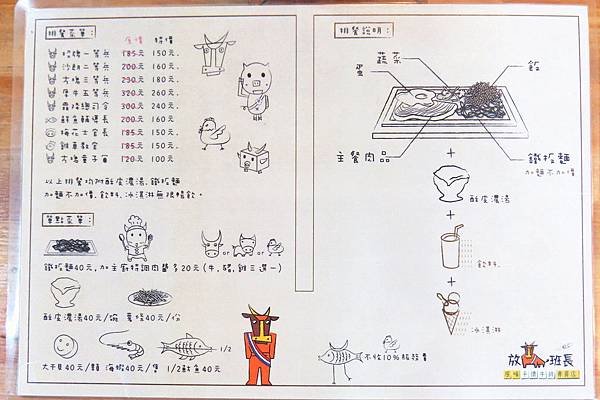 排餐菜單：
原價 特價
招牌一等兵 185元 150元.
沙朗二等兵 200元 160元.
大塊三等兵 230元 180元.
厚牛五等兵 320元 260元.
霜降總司令 300元 240元.
鮮魚輔導長 200元 160元.
梅花士官長 185元 150元.
雞車教官 185元 150元.
大塊童子軍 120元 100元
以上排餐均附酥皮濃湯,鐵板麵
加麵不加價,飲料,冰淇淋無限暢飲。
單點菜單：
or or
鐵板麵40元,加主廚特調肉醬多20元(牛,豬,雞三選一)
酥皮濃湯40元/碗 薯條40元/份
1/2
大干貝40元/顆 海蝦40元/隻 1/2魷魚40元
排餐說明：
蔬菜
蛋
飯
主餐肉品
鐵板麵
加麵不加價
+
酥皮濃湯
+
飲料.
+
冰淇淋
不收10%服務費
放牛班長
原味平價牛排專賣店